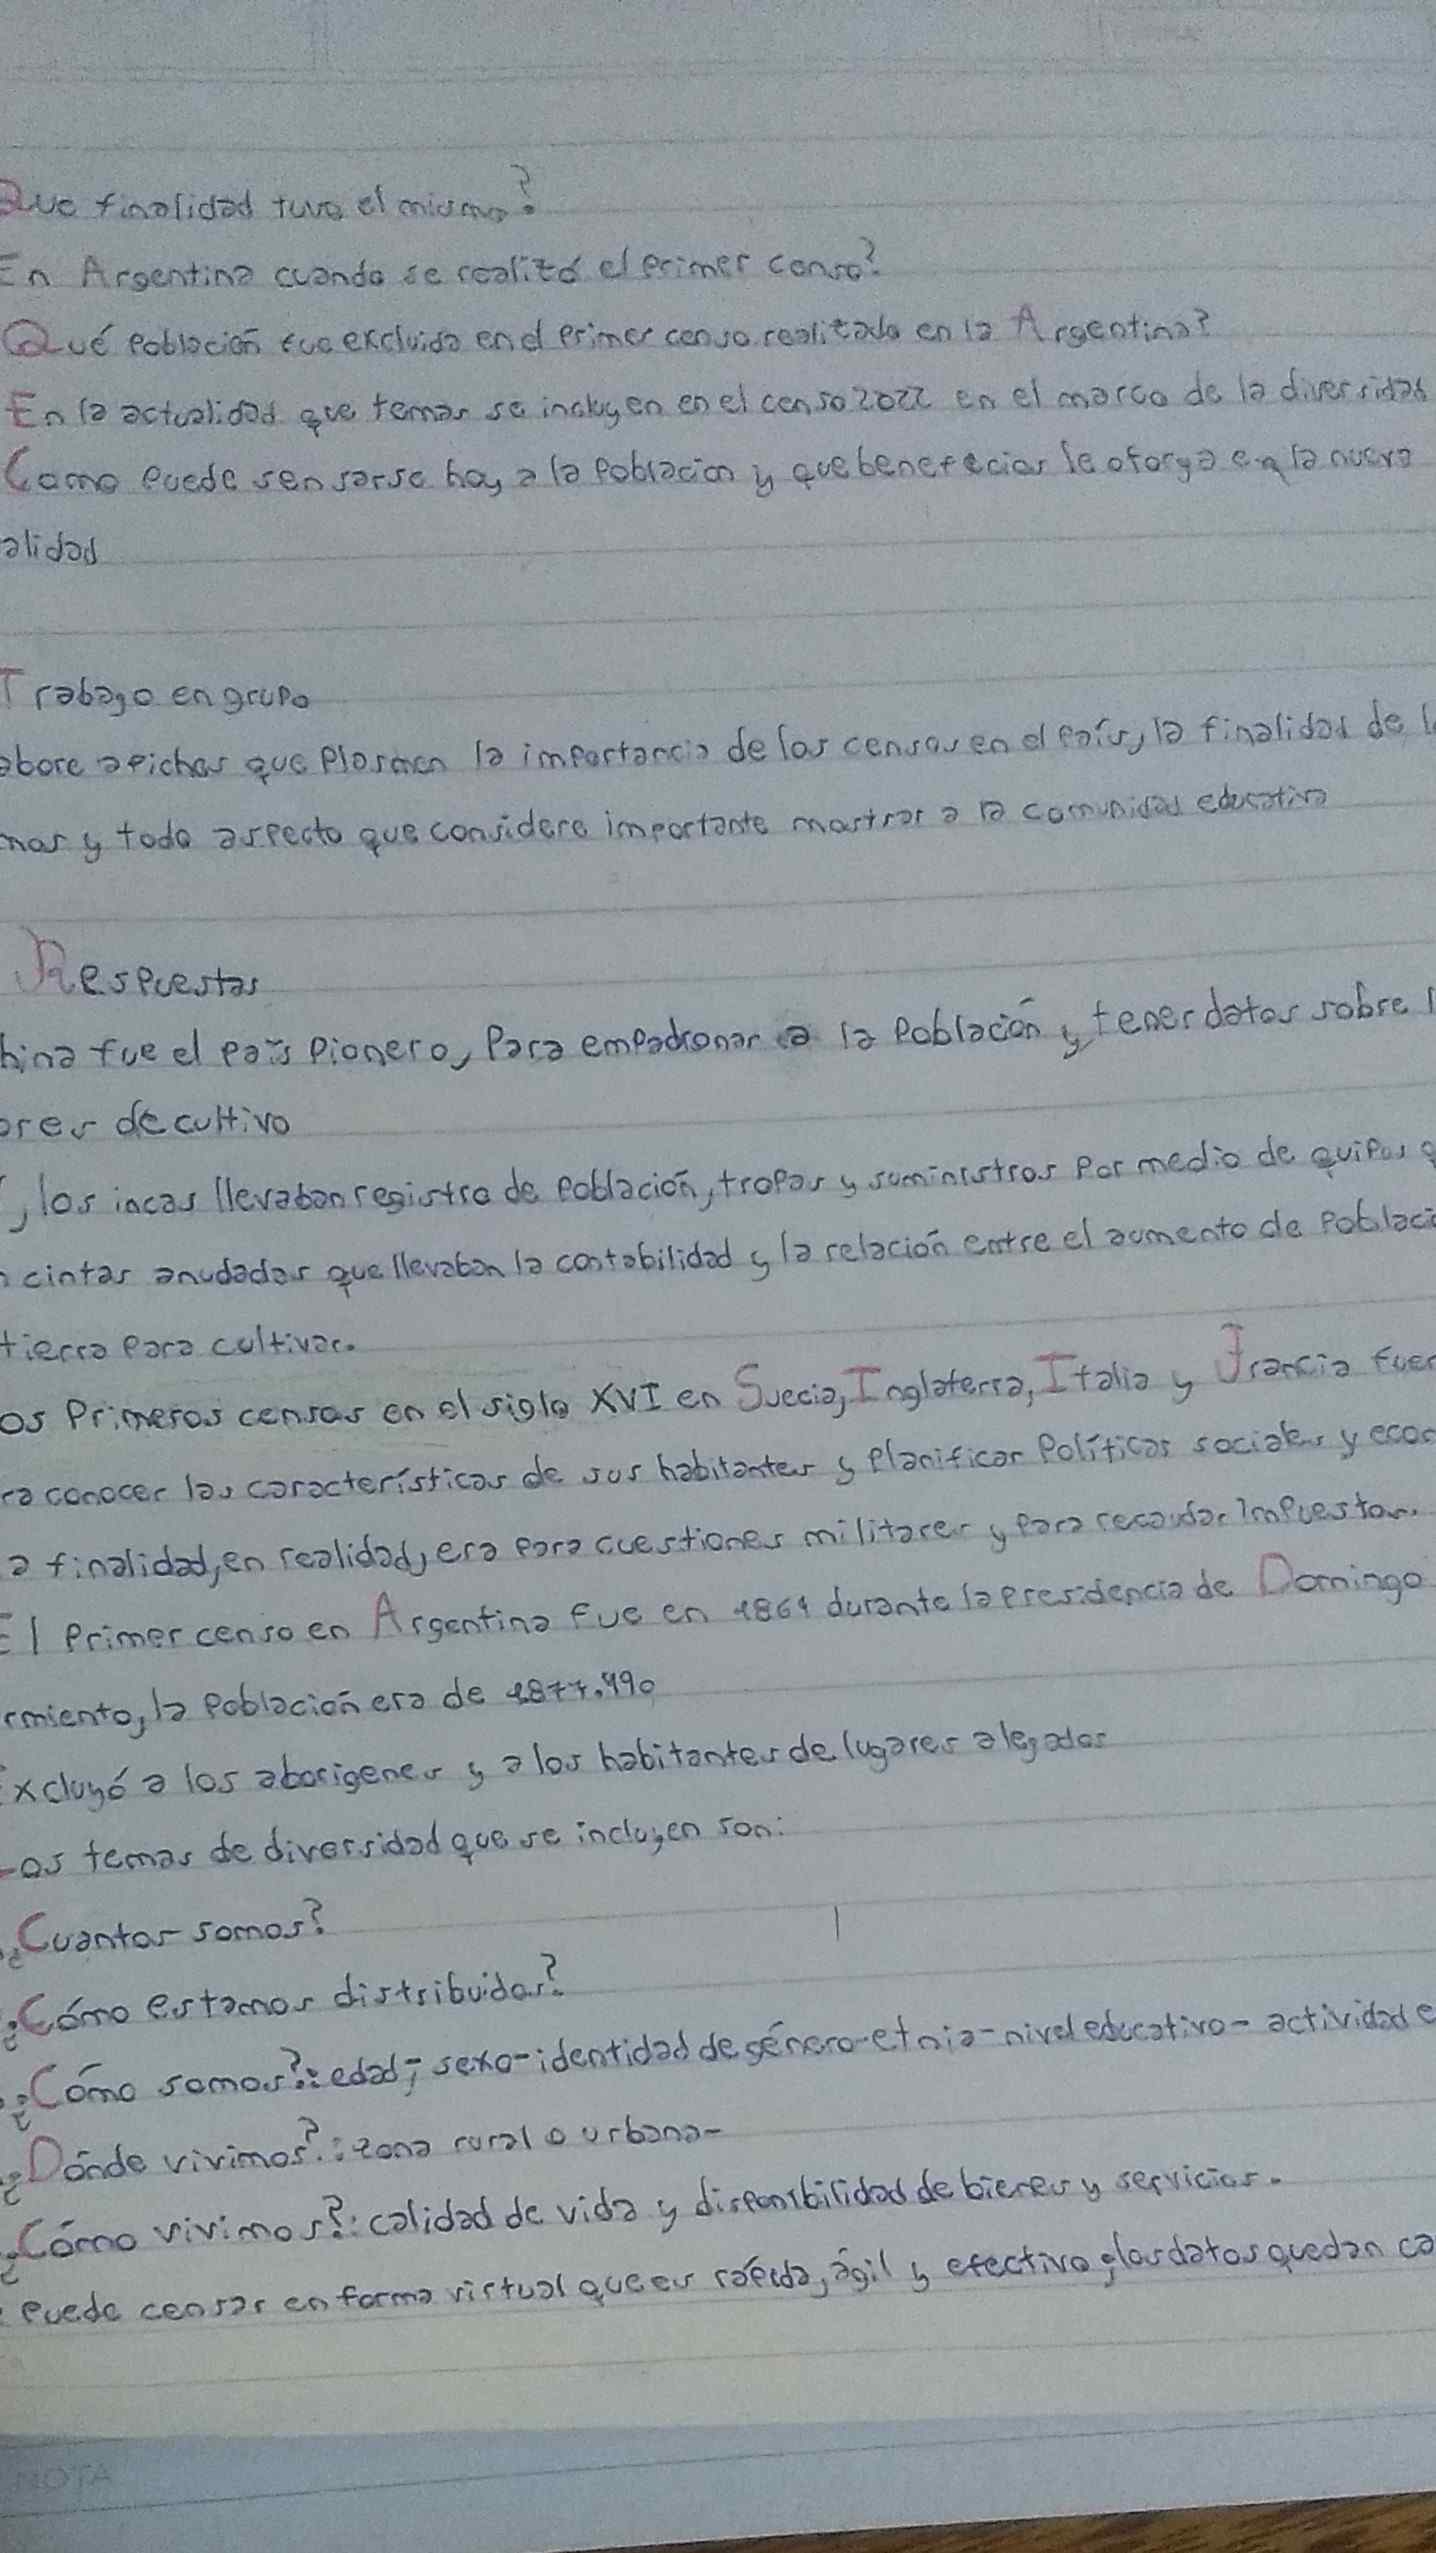 Que finalidad tuvo el mismo?
En Argentina cuando se realizó el Primer censo?
Qué Población fue excluida en el Primer censo realizado en la Argentina?
En la actualidad que temas se incluyen en el censo 2022 en el marco de la diversidad
Como Puede sensarse hoy a la Población y que benefecios le otorga en la nueva
alidad
Trabago en grupo
abore afiches que Plasmen la importancia de los censos en el País, la finalidad de l
mos y todo aspecto que considere importante mostrar a la comunidad educativa
Respuestas
hina fue el país Pionero, Para empadronar a la Población y tener datos sobre l
ores de cultivo
, los incas llevaban registro de Población, tropas y suministros Por medio de quipus q
n cintas anudadas que llevaban la contabilidad y la relación entre el aumento de Poblaci
tierra Para cultivar.
os Primeros censos en el siglo XVI en Suecia, Inglaterra, Italia y Francia fuer
ra conocer las características de sus habitantes y Planificar Políticas sociales y econ
a finalidad, en realidad, era Para cuestiones militares y Para recaudar Impuestos.
El Primer censo en Argentina fue en 1869 durante la Presidencia de Domingo
rmiento, la Población era de 1877.490
Excluyó a los aborigenes y a los habitantes de lugares alegados
Los temas de diversidad que se incluyen son:
¿Cuantos somos?
¿Cómo estamos distribuidos?
¿Cómo somos?: edad, sexo-identidad de género-etnia-nivel educativo-actividad e
¿Dónde vivimos?: zona rural o urbana-
¿Cómo vivimos?: calidad de vida y disponibilidad de bienes y servicios.
Puede censar en forma virtual que es rápida, ágil y efectiva, los datos quedan ca
NOTA